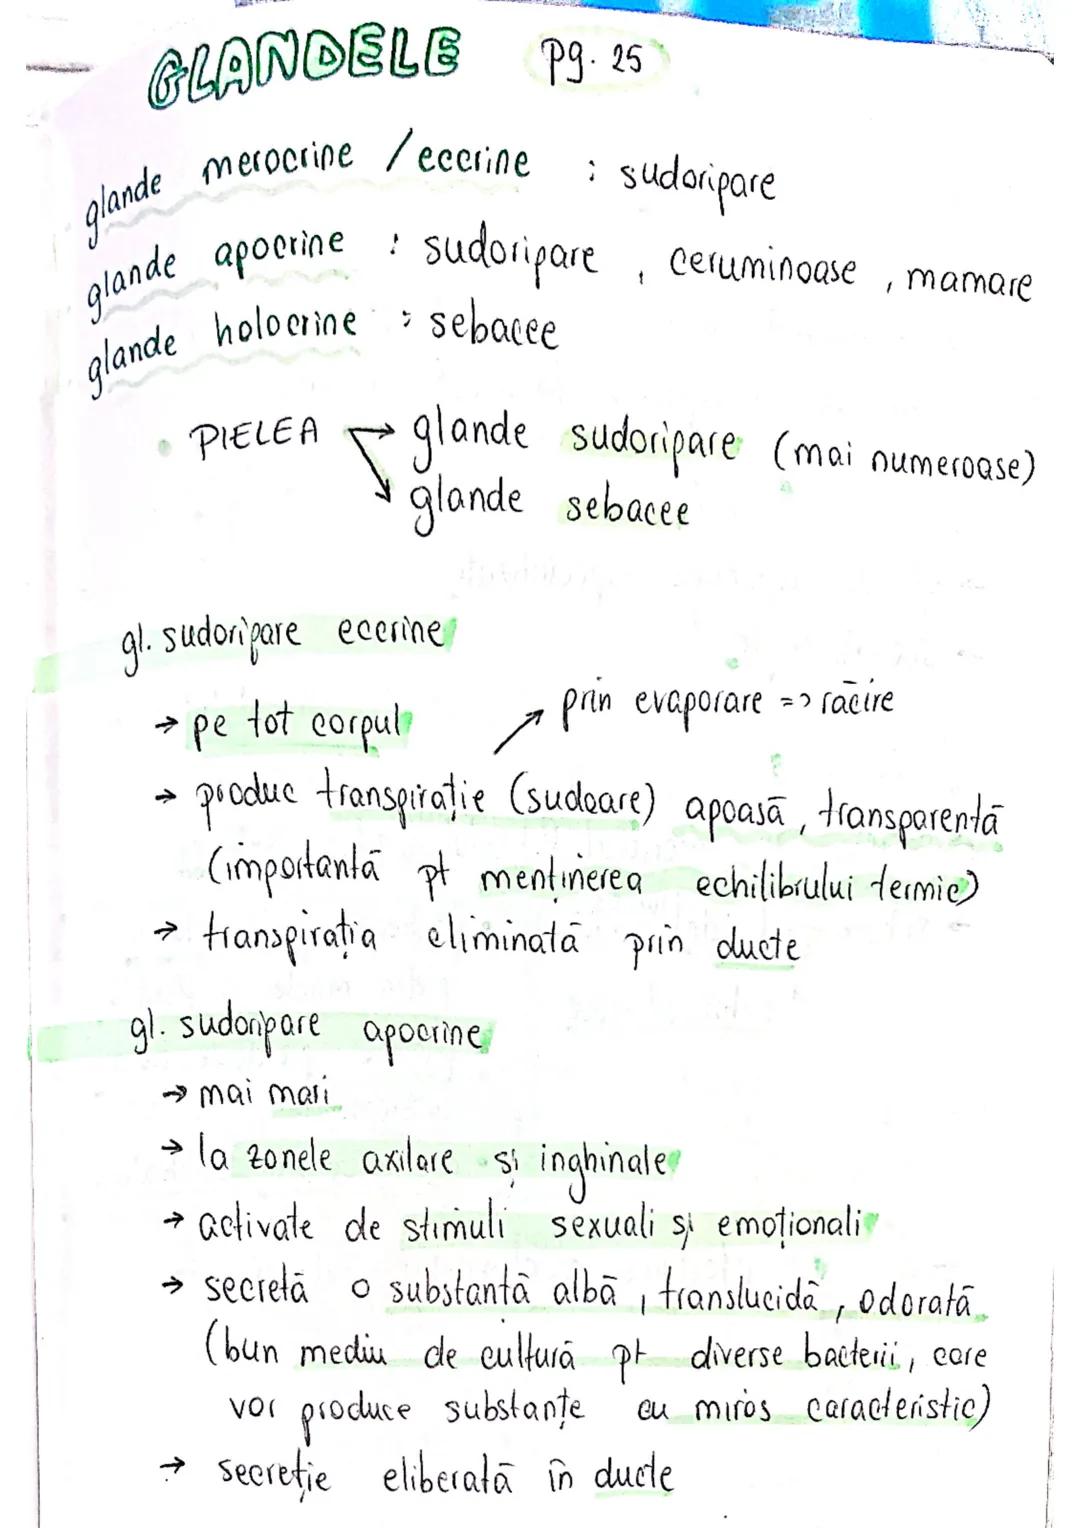 GLANDELE pg. 25
glande merocrine / eccrine : sudoripare
glande apocrine : sudoripare, ceruminoase, mamare
glande holocrine : sebacee
• PIELEA → glande sudoripare (mai numeroase)
↘ glande sebacee
gl. sudoripare eccrine
→ pe tot corpul
↗ prin evaporare => răcire
→ produc transpirație (sudoare) apoasă, transparentă
(importantă pt menținerea echilibrului termic)
→ transpirația eliminată prin ducte
gl. sudoripare apocrine
→ mai mari
→ la zonele axilare și inghinale
→ activate de stimuli sexuali și emoționali
→ secretă o substanță albă, translucidă, odorată
(bun mediu de cultură pt diverse bacterii, care
vor produce substanțe cu miros caracteristic)
→ secreție eliberată în ducte